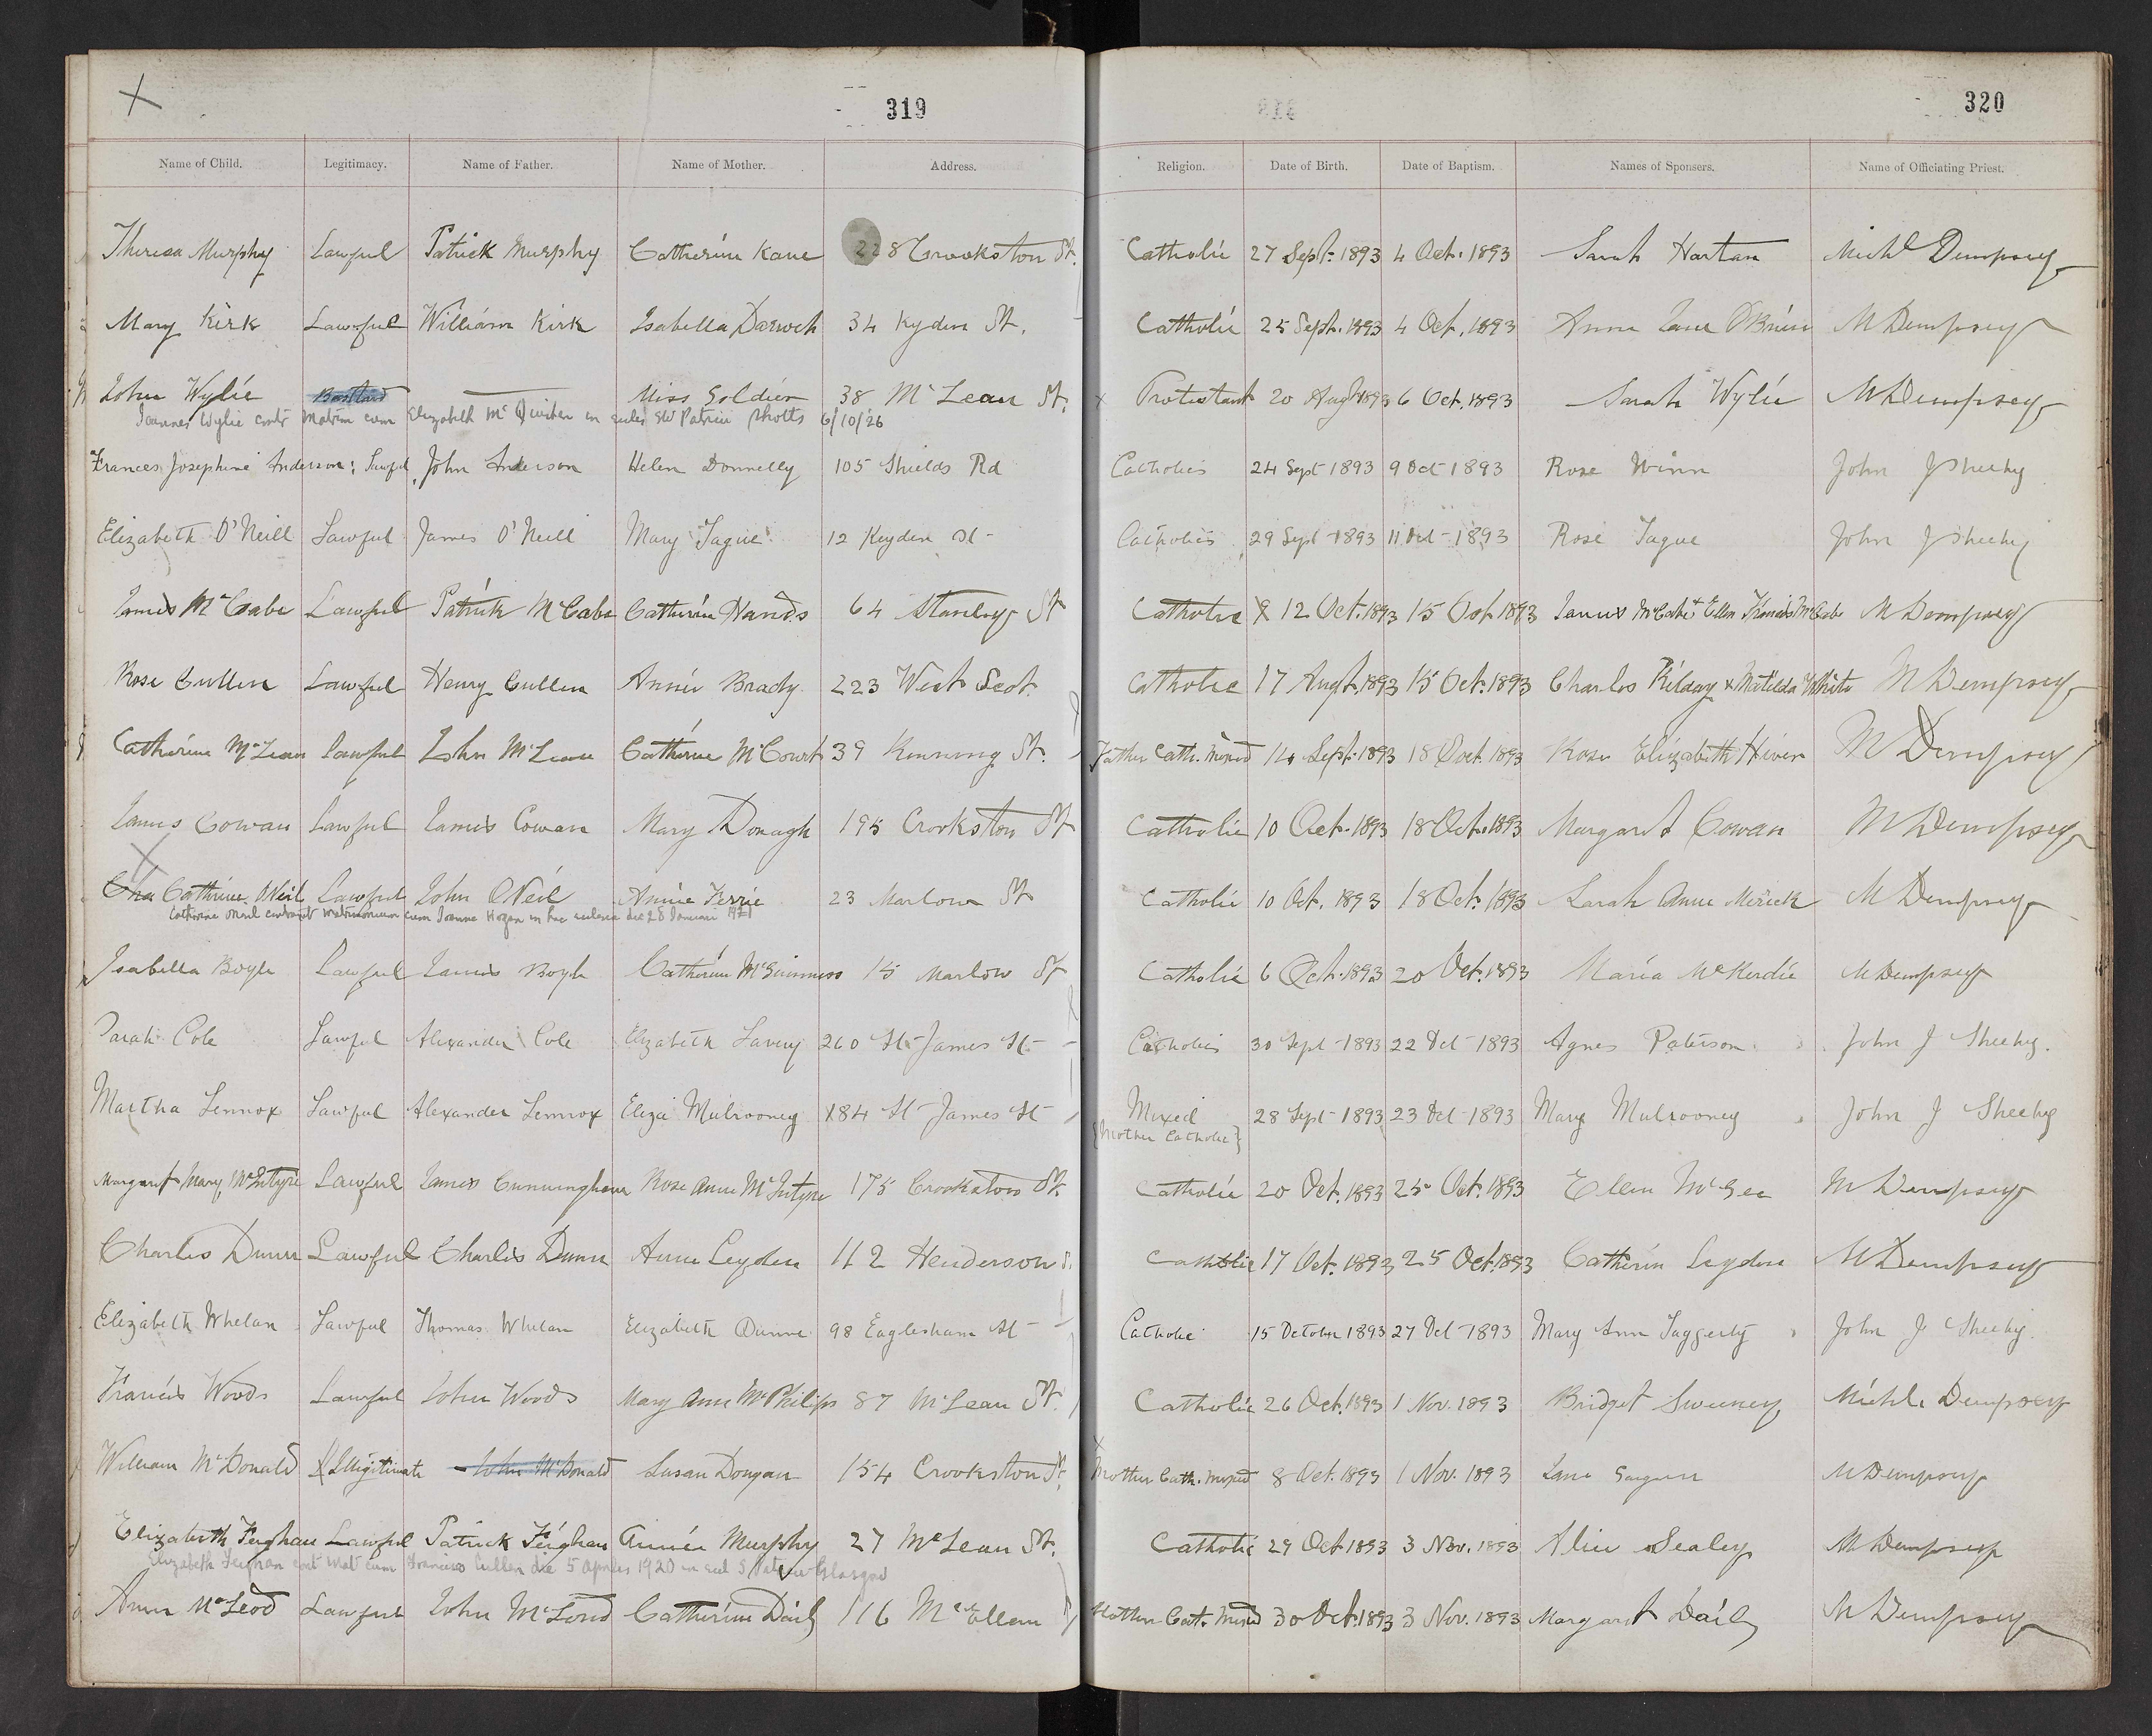 319
320
Name of Child. Legitimacy. Name of Father. Name of Mother. Address. Religion. Date of Birth. Date of Baptism. Names of Sponsers. Name of Officiating Priest.
Theresa Murphy Lawful Patrick Murphy Catherine Kane 228 Crookston St. Catholic 27 Sept. 1893 4 Oct. 1893 Sarah Hartan Michl Dempsey
Mary Kirk Lawful William Kirk Isabella Darroch 34 Kyden St. Catholic 25 Sept. 1893 4 Oct. 1893 Anne Jane O'Brien M Dempsey
John Wylie Bastard Miss Goldier 38 McLean St. x Protestant 20 Augt 1893 6 Oct. 1893 Sarah Wylie M Dempsey
Joannes Wylie contr Matrim cum Elizabeth Mc in Patricii Shotts 6/10/26
Frances Josephine Anderson: Lawful John Anderson Helen Donnelly 105 Shields Rd Catholics 24 Sept 1893 9 Oct 1893 Rose Winn John J Sheehy
Elizabeth O'Neill Lawful James O'Neill Mary Tague 12 Keyden St Catholics 29 Sept 1893 11 Oct 1893 Rose Tague John J Sheehy
James McCabe Lawful Patrick McCabe Catherine Hands 64 Stanley St Catholic 12 Oct. 1893 15 Oct 1893 James McCabe + Ellen McCabe M Dempsey
Rose Cullen Lawful Henry Cullen Annie Brady 223 West Scot. Catholic 17 Augt. 1893 15 Oct. 1893 Charles Kilday & Matilda White M Dempsey
Catherine McLean Lawful John McLean Catherine McCourt 39 Kinning St. Father Cath. Mixed 14 Sept. 1893 18 Oct. 1893 Rose Elizabeth Hiver M Dempsey
James Cowan Lawful James Cowan Mary Donagh 195 Crookston St Catholic 10 Oct. 1893 18 Oct. 1893 Margaret Cowan M Dempsey
Cha Catherine ONeil Lawful John ONeil Annie Ferrie 23 Marlow St Catholic 10 Oct. 1893 18 Oct. 1893 Sarah Anne Merick M Dempsey
Catherine Oneil contraxit matrimonium cum Joanne Hogan in hac ecclesia die 28 Januarii 1921
Isabella Boyle Lawful James Boyle Catherine McGuinness 15 Marlow St Catholic 6 Oct. 1893 20 Oct. 1893 Maria McKerdie M Dempsey
Sarah Cole Lawful Alexander Cole Elizabeth Lavery 260 St James St Catholics 30 Sept 1893 22 Oct 1893 Agnes Paterson John J Sheehy.
Martha Lennox Lawful Alexander Lennox Eliza Mulrooney 184 St James St Mixed 28 Sept 1893 23 Oct 1893 Mary Mulrooney John J Sheehy
{Mother Catholic}
Margaret Mary McIntyre Lawful James Cunningham Rose Anne McIntyre 175 Crookston St. Catholic 20 Oct. 1893 25 Oct. 1893 Ellen McGee M Dempsey
Charles Dunn Lawful Charles Dunn Anne Leyden 112 Henderson S. Catholic 17 Oct. 1893 25 Oct. 1893 Catherin Leyden M Dempsey
Elizabeth Whelan Lawful Thomas Whelan Elizabeth Dunne 98 Eaglesham St Catholic 15 October 1893 27 Oct 1893 Mary Ann Taggerty John J Sheehy.
Francis Woods Lawful John Woods Mary Anne McPhilips 87 McLean St. Catholic 26 Oct. 1893 1 Nov. 1893 Bridget Sweeney Michl. Dempsey
William McDonald Illigitimate John McDonald Susan Dougan 154 Crookston St. x Mother Cath. Mixed 8 Oct. 1893 1 Nov. 1893 Jane M Dempsey
Elizabeth Feighan Lawful Patrick Feighan Annie Murphy 27 McLean St. Catholic 29 Oct 1893 3 Nov. 1893 Alice Sealey M Dempsey
Elizabeth Feighan cont mat cum Francisco Cullen die 5 Aprilis 1920 in eccl S Glasgow
Anne McLeod Lawful John McLeod Catherine Daily 116 McEllen Mother Cath Mixed 30 Oct. 1893 3 Nov. 1893 Margaret Daily M Dempsey